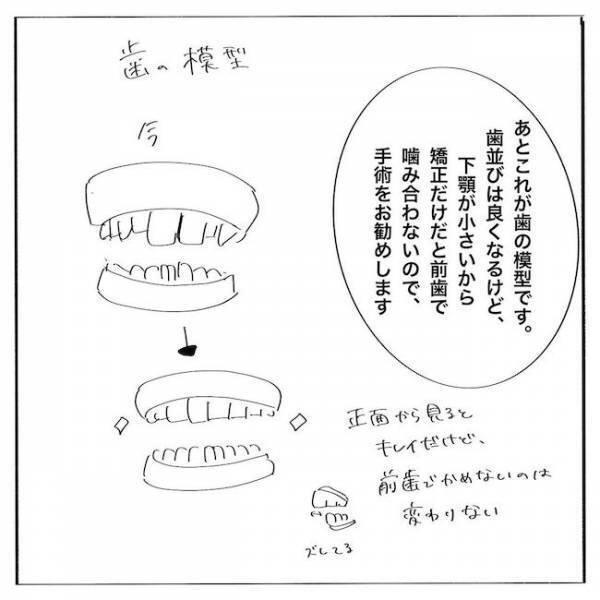 歯の模型
今
あとこれが歯の模型です。
歯並びは良くなるけど、
下顎が小さいから
矯正だけだと前歯で
噛み合わないので、
手術をお勧めします
正面から見ると
キレイだけど、
前歯でかめないのは
変わりない
ズレてる